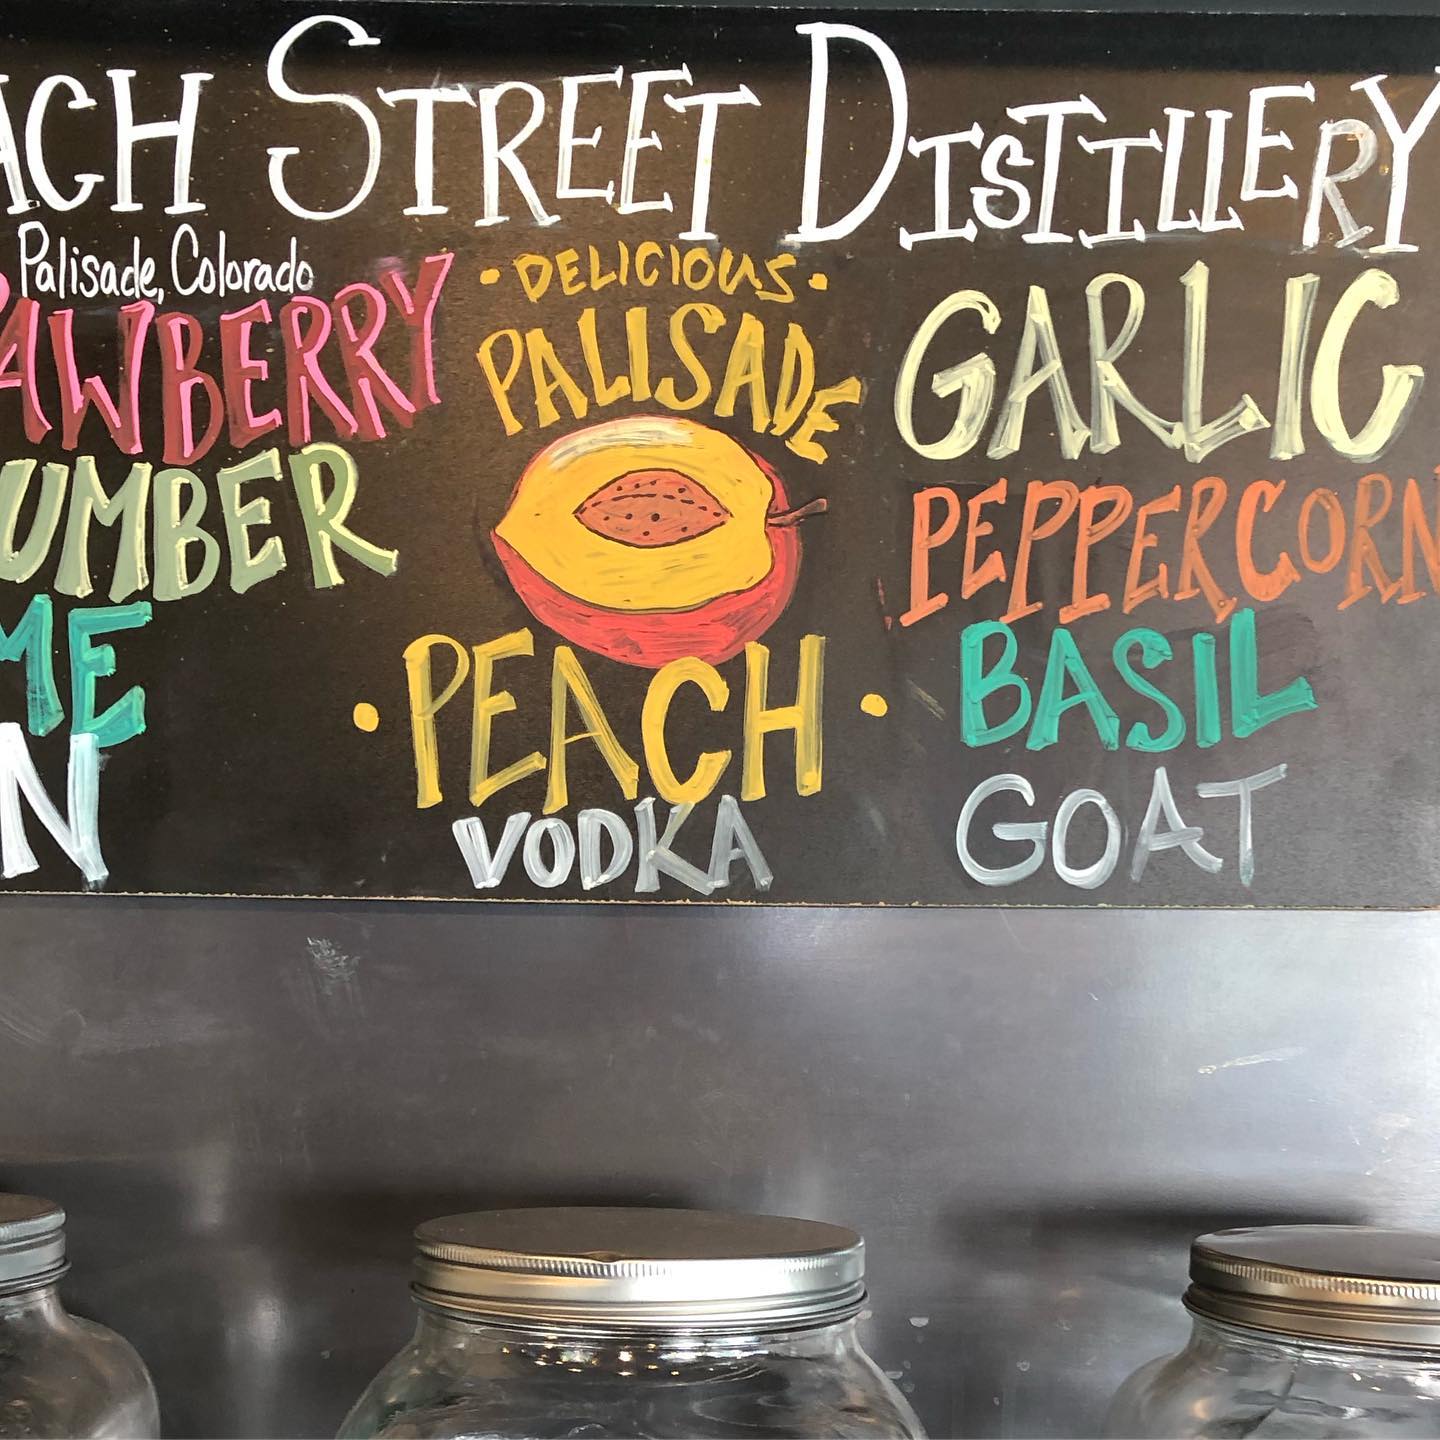 ACH STREET DISTILLERY
Palisade, Colorado
RAWBERRY
UMBER
ME
N
• DELICIOUS •
PALISADE
• PEACH •
VODKA
GARLIC
PEPPERCORN
BASIL
GOAT